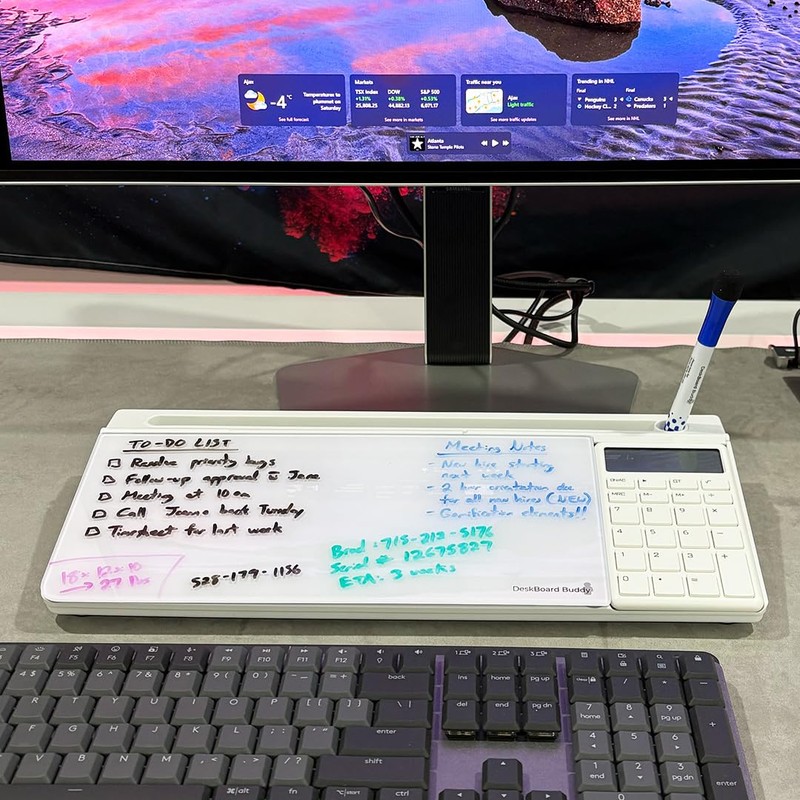 Ajax
-4°C
Temperatures to
plummet on
Saturday
See full forecast
Markets
TSX Index DOW S&P 500
+1.31% +0.38% +0.53%
See more in markets
Traffic near you
Ajax
Light traffic
See more traffic updates
Trending in NHL
Final Final
Penguins Canucks
Hockey Cl... 2 Predators 1
See more in NHL
Atlanta
Stone Temple Pilots
TO-DO LIST
Resolve priority bugs
Follow-up approval Jane
Meeting at 10 am
Call Joanna back Tuesday
Timesheet for last week
Meeting Notes
- New hire starting
next week
- 2 hour orientation doc
for all new hires (NEW)
- Gamification elements!!
18 x 12 x 10
→ 27 lbs
528-179-1156
Brad: 715-212-5176
Serial #: 12675827
ETA: 3 weeks
DeskBoard Buddy
GT
MRC M- M+ ÷
7 8 9 ×
4 5 6 -
1 2 3 +
0 • =
F4 F5 F6 F7 F8 F9 F10 F11 F12
back
ins home pg up
del end pg dn
enter
shift
⌘/alt fn ctrl
7 8 9
home pg up
4 5 6
1 2 3
end pg dn
enter
0